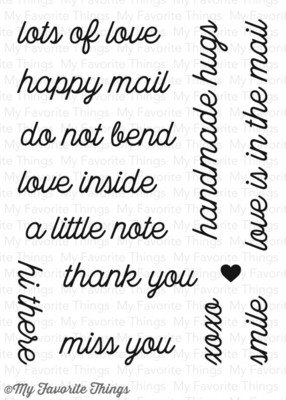 lots of love
happy mail
do not bend
love inside
a little note
thank you
miss you
hi there
handmade hugs
love is in the mail
xoxo
smile
©My Favorite Things